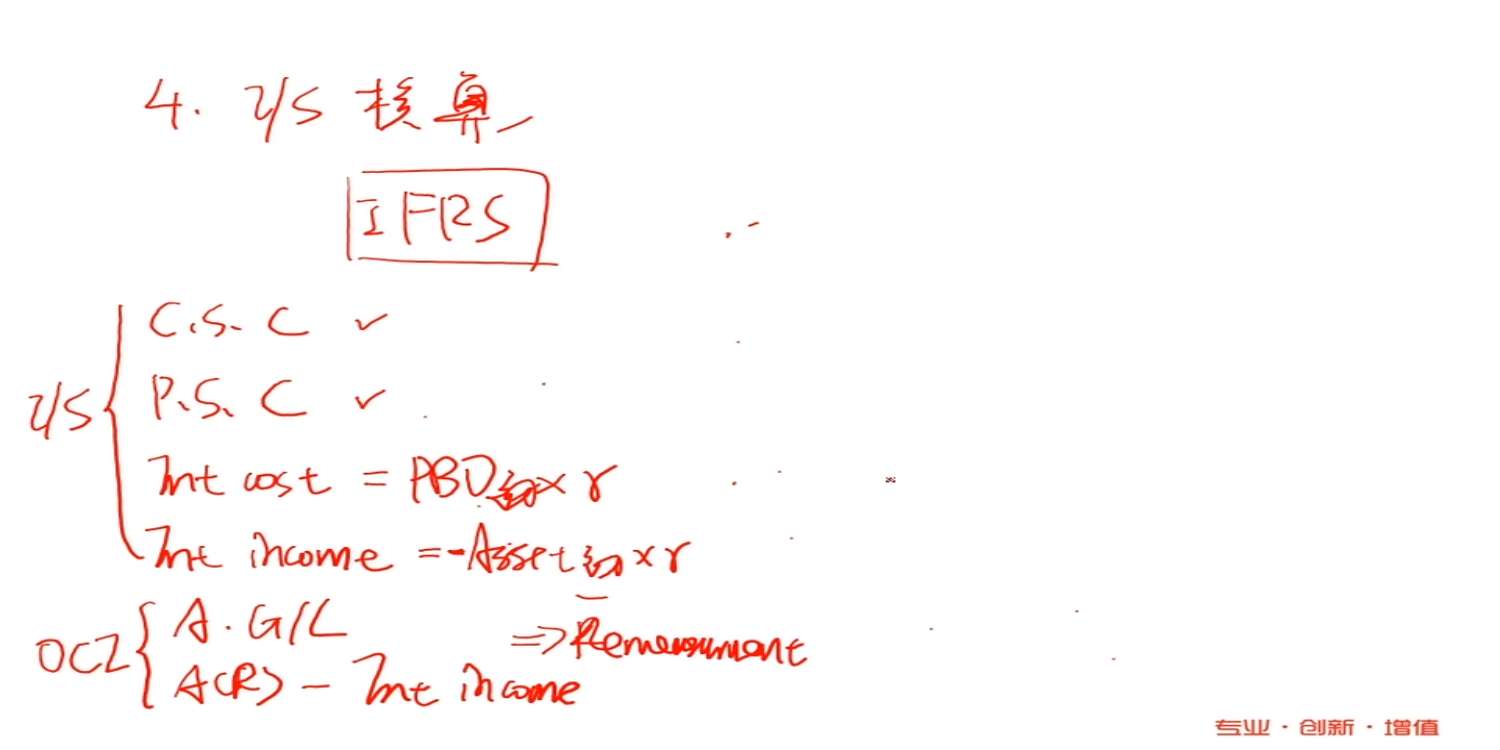 4. I/S 核算
IFRS
I/S
C.S.C ✓
P.S.C ✓
Int cost = PBO初×r
Int income =-Asset初×r
OCI
A.G/L
A(R) - Int income
=> Remeasurement
专业·创新·增值